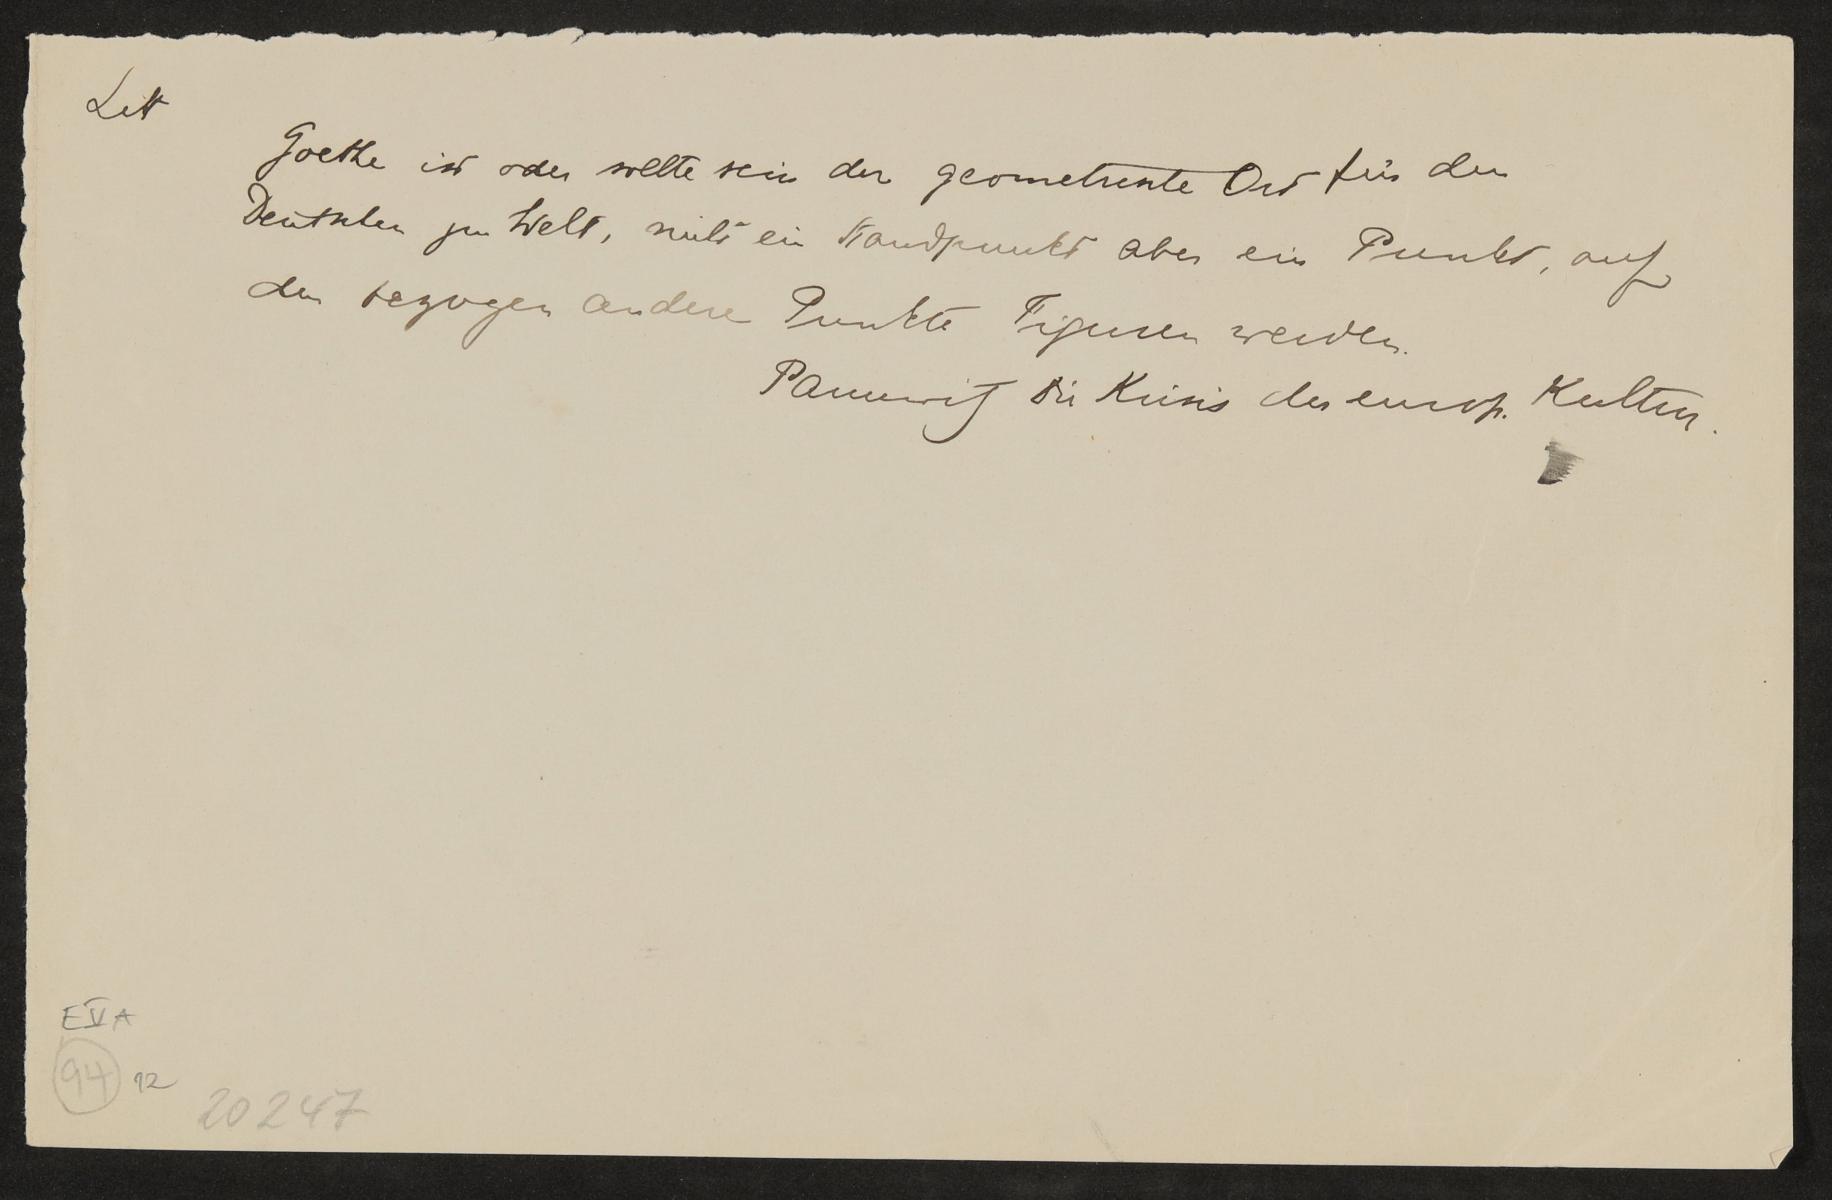 Litt
Goethe ist oder sollte sein der geometrische Ort für den
Deutschen zur Welt, nicht ein Standpunkt aber ein Punkt, auf
den bezogen andere Punkte Figuren werden.
Pannwitz Die Krisis der europ. Kultur.
E V A
94 12
20247